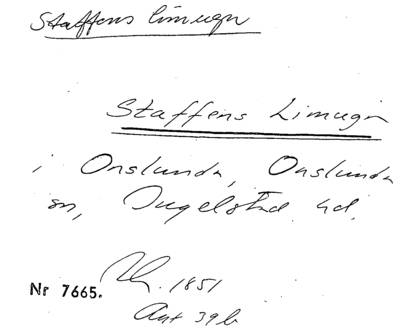 Staffens limugn
Staffens Limugn
i Onslunda, Onslunda
sn, Ingelstad hd.
Nr 7665. 1851
Ant 39b